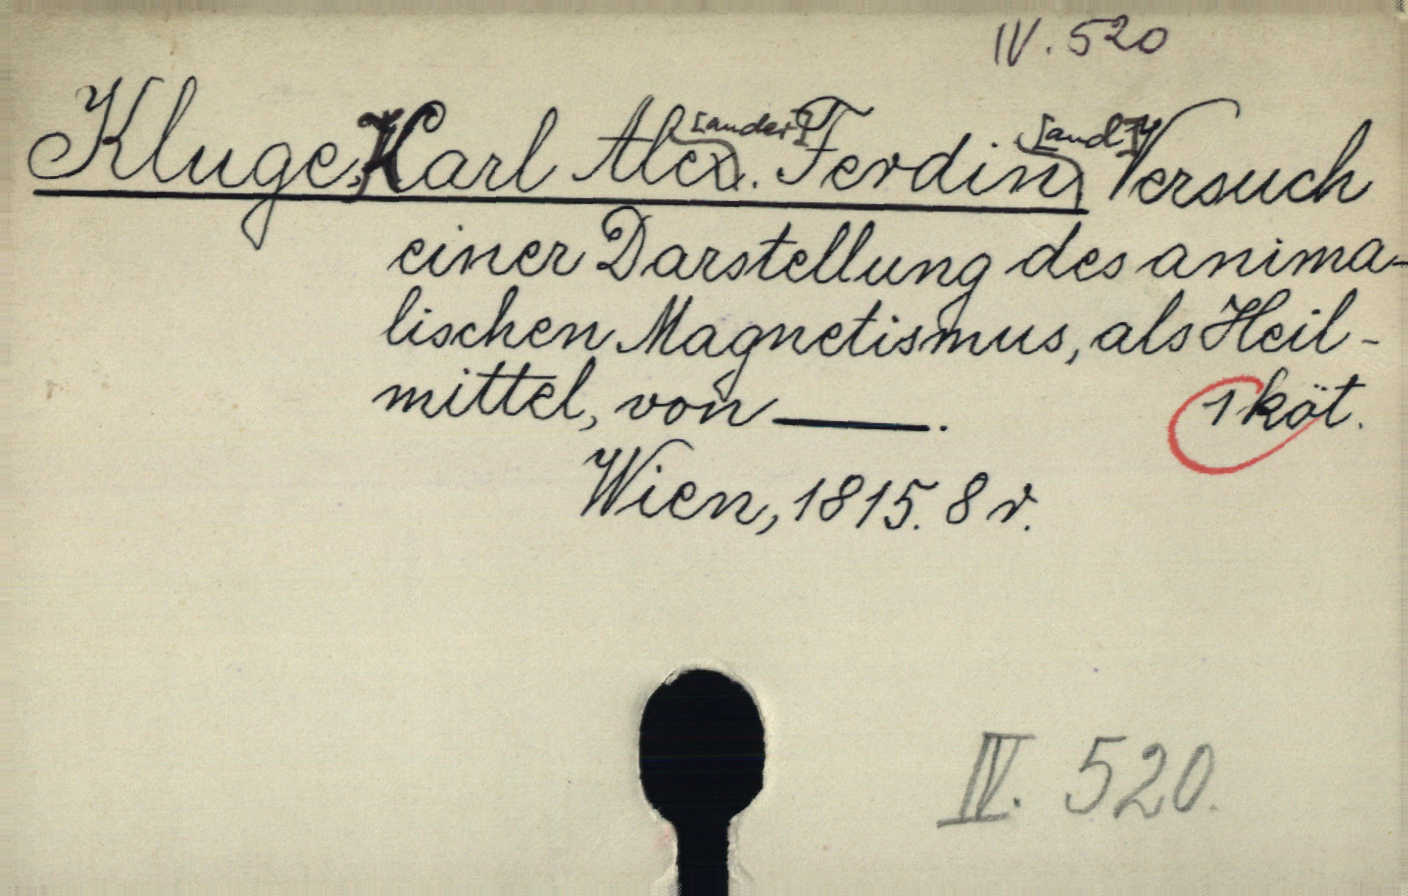 IV. 520
Kluge, Karl Alex[ander] Ferdin[and] Versuch
einer Darstellung des anima-
lischen Magnetismus, als Heil-
mittel, von ———. 1 köt.
Wien, 1815. 8 r.
IV. 520.